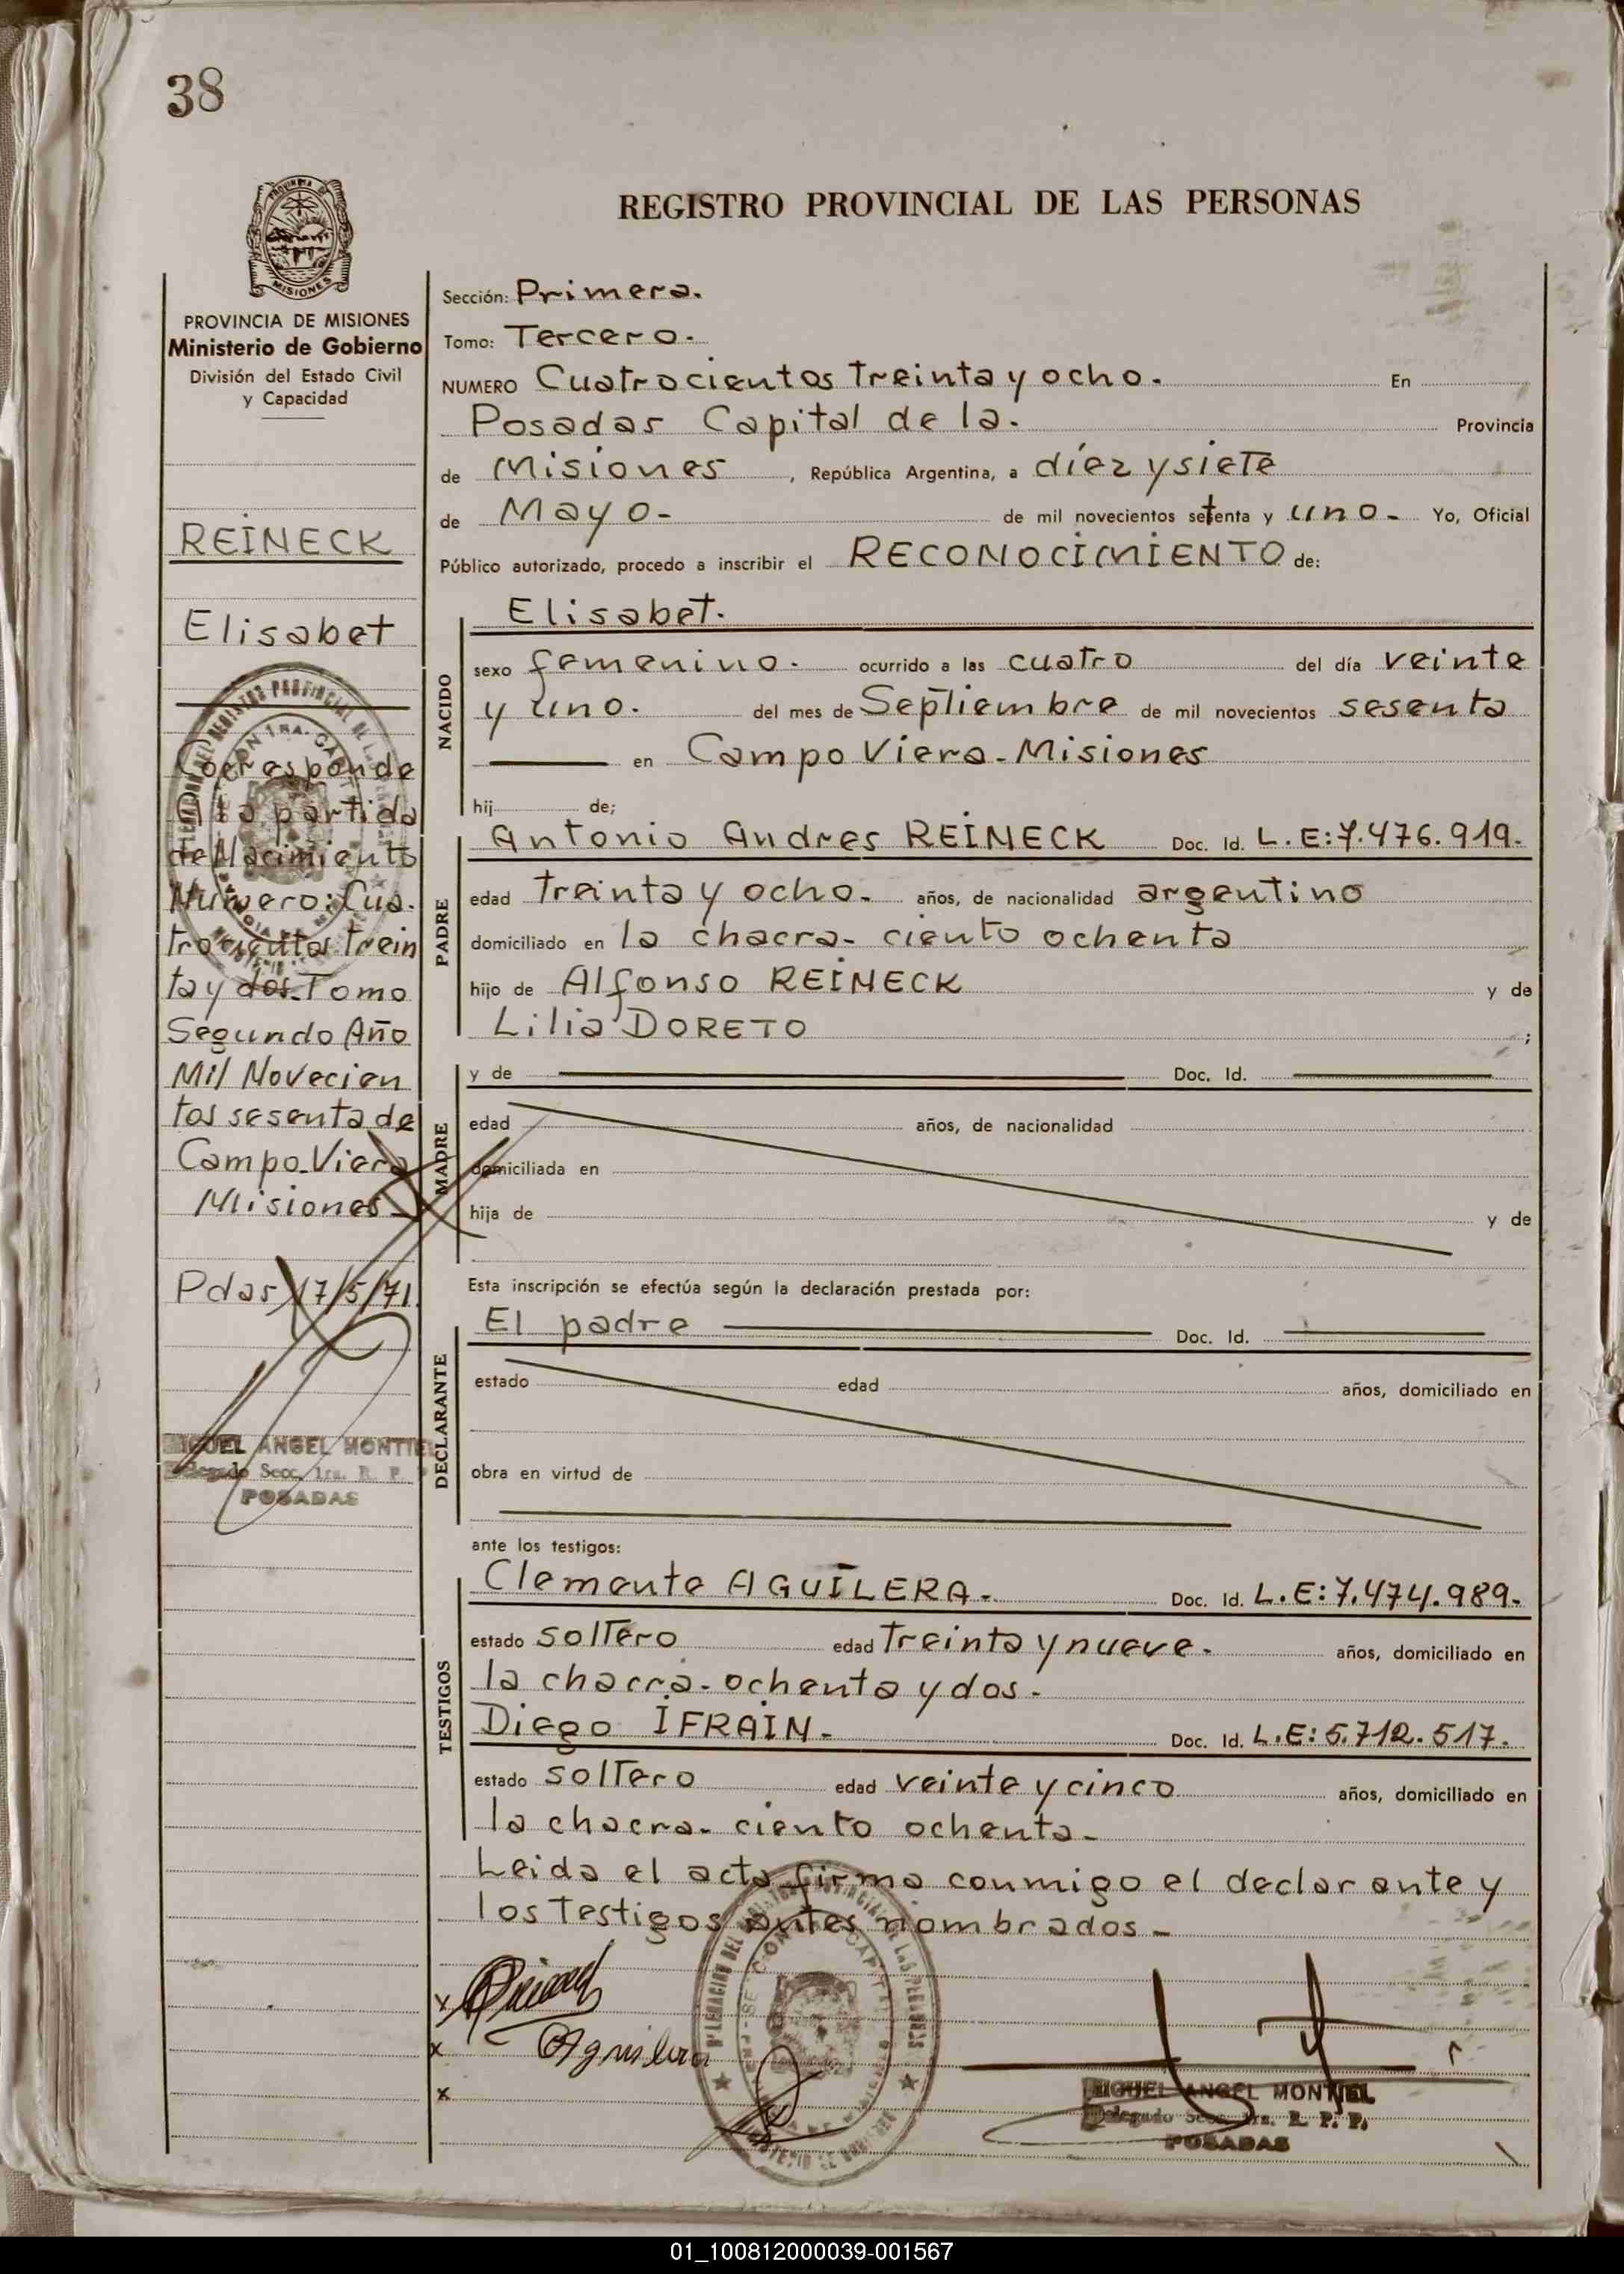 38
PROVINCIA DE MISIONES
Ministerio de Gobierno
División del Estado Civil
y Capacidad
REINECK
Elisabet
Corresponde
A la partida
de Nacimiento
Numero: Cua.
trocientos trein
ta y dos. Tomo
Segundo Año
Mil Novecien
tos sesenta de
Campo Viera
Misiones
Pdas 17/5/71.
MIGUEL ANGEL MONTIEL
Delegado Secc. 1ra. R. P.
POSADAS
REGISTRO PROVINCIAL DE LAS PERSONAS
Sección: Primera.
Tomo: Tercero.
NUMERO Cuatrocientos treinta y ocho. En
Posadas Capital de la. Provincia
de Misiones, República Argentina, a diez y siete
de Mayo- de mil novecientos setenta y uno- Yo, Oficial
Público autorizado, procedo a inscribir el RECONOCIMIENTO de:
NACIDO
Elisabet.
sexo femenino. ocurrido a las cuatro del día veinte
y uno. del mes de Septiembre de mil novecientos sesenta
en Campo Viera-Misiones
hij de;
PADRE
Antonio Andres REINECK Doc. Id. L.E:7.476.919.
edad treinta y ocho. años, de nacionalidad argentino
domiciliado en la chacra- ciento ochenta
hijo de Alfonso REINECK y de
Lilia DORETO ;
MADRE
y de Doc. Id.
edad años, de nacionalidad
domiciliada en
hija de y de
Esta inscripción se efectúa según la declaración prestada por:
DECLARANTE
El padre Doc. Id.
estado edad años, domiciliado en
obra en virtud de
ante los testigos:
TESTIGOS
Clemente AGUILERA. Doc. Id. L.E:7.474.989.
estado soltero edad treinta y nueve. años, domiciliado en
la chacra-ochenta y dos.
Diego IFRAIN- Doc. Id. L.E:5.712.517.
estado soltero edad veinte y cinco años, domiciliado en
la chacra- ciento ochenta-
Leida el acta firma conmigo el declarante y
los testigos antes nombrados-
Aguilera
MIGUEL ANGEL MONTIEL
Delegado Secc. 1ra. R. P. P.
POSADAS
01_100812000039-001567